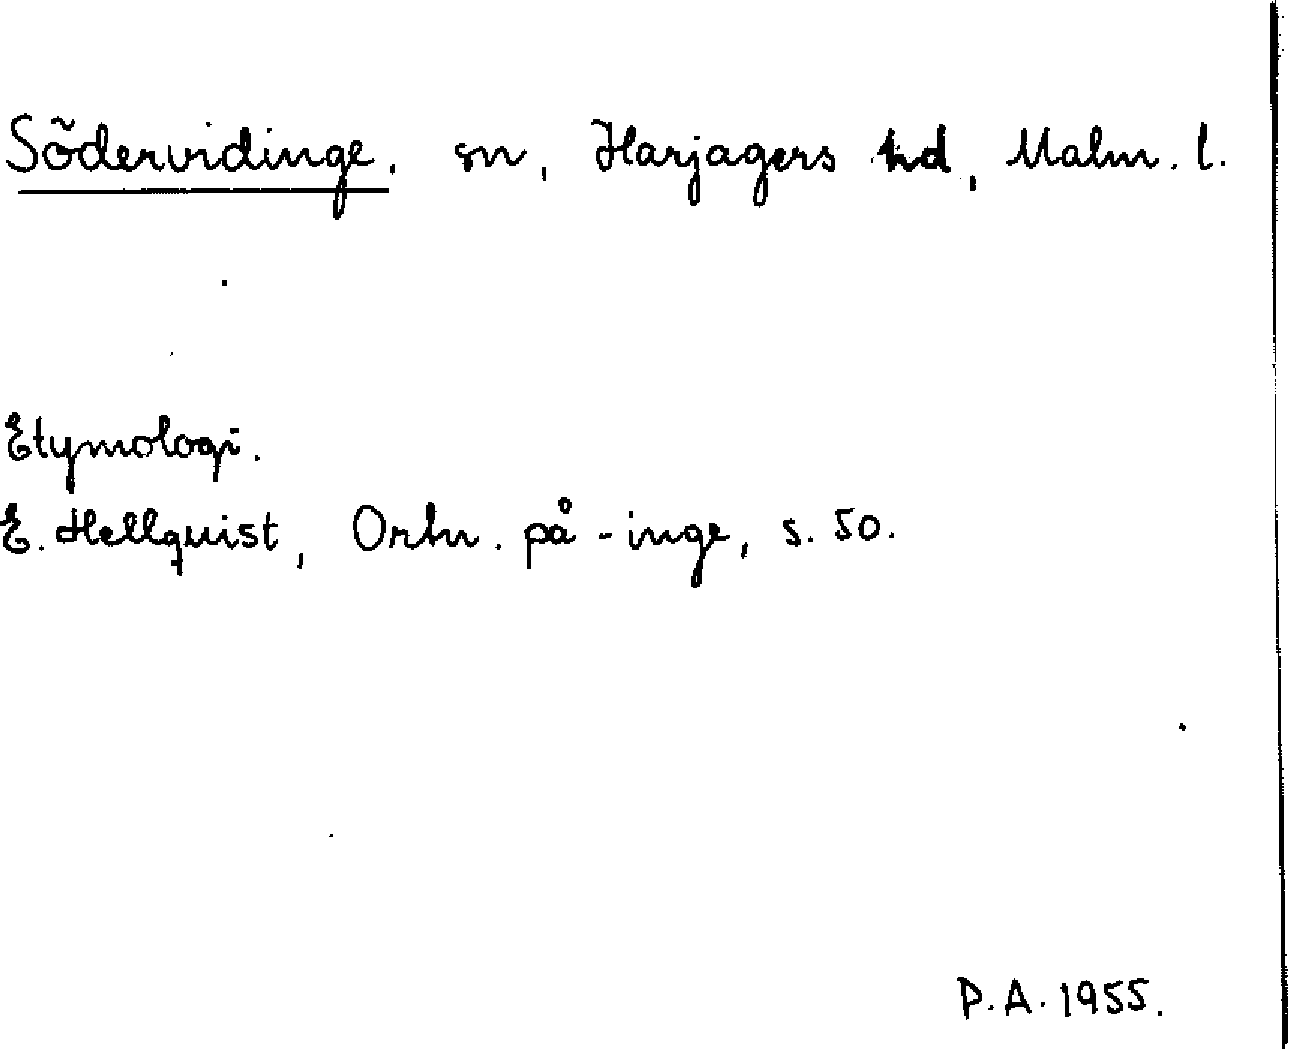 Södervidinge. sn, Harjagers hd, Malm. l.
Etymologi.
E. Hellquist, Ortn. på -inge, s. 50.
P.A. 1955.